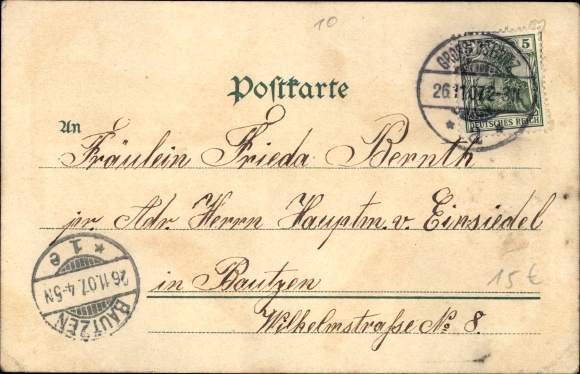 10
5
DEUTSCHES REICH
26.11.07.2-3N
Postkarte
An
Fräulein Frieda Bernth
pr. Adr. Herrn Hauptm. v. Einsiedel
in Bautzen
Wilhelmstraße No 8.
15 €
BAUTZEN
26.11.07.4-5N
* 1 e